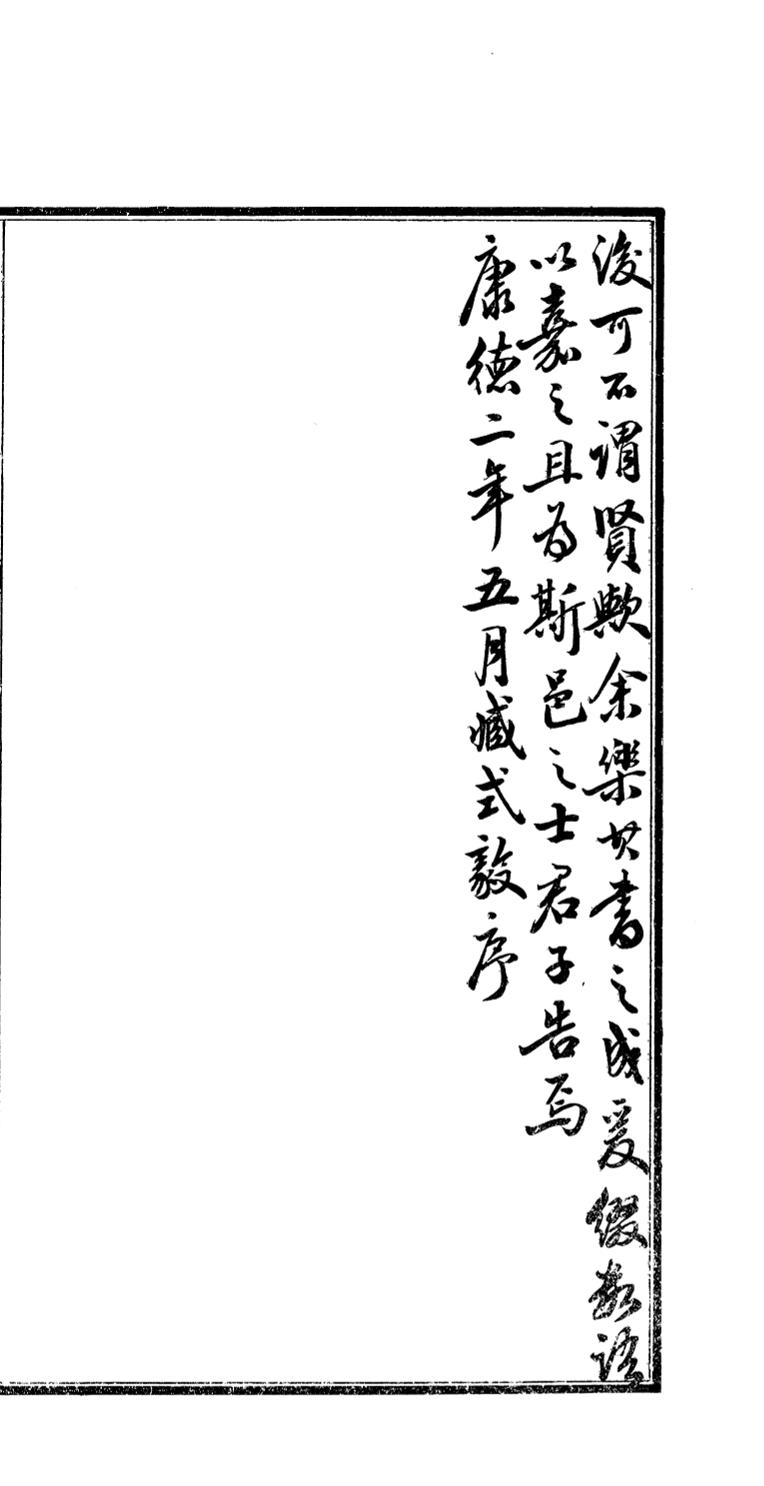 後可不謂賢歟余樂其書之成爰綴數語
以嘉之且為斯邑之士君子告焉
康德二年五月臧式毅序